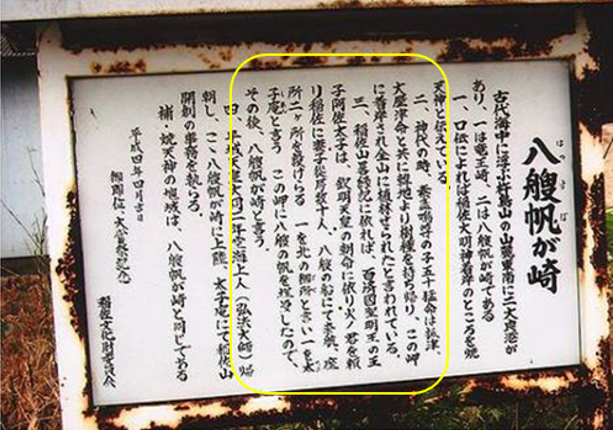 八艘帆が崎
古代海中に浮ぶ杵島山の山麓東南に二大良港が
あり、一は竜王崎、二は八艘帆が崎である
一、口伝によれば稲佐大明神着岸のところを焼
天神と伝えている。
二、神代の時、素戔嗚尊の子五十猛命は抓津、
大屋津命と共に韓地より樹種を持ち帰り、この岬
に着岸され全山に植林せられたと言われている。
三、稲佐山畧縁記に依れば、百済国聖明王の王
子阿佐太子は、欽明天皇の朝命に依り火ノ君を頼
り稲佐に妻子従属数十人、八艘の船にて来航、座
所二ヶ所を設けらる 一を北の御所と言い一を太
子庵と言う この岬に八艘の帆を したので、
その後、八艘帆が崎と言う。
四、平城天皇大同二年空海上人（弘法大師）帰
朝し、ここ八艘帆が崎に上陸、太子庵にて稲佐山
開創の事務を執らる。
補・焼天神の地域は、八艘帆が崎と同じである
平成四年四月吉日
御即位・大嘗祭記念
稲佐文化財委員会